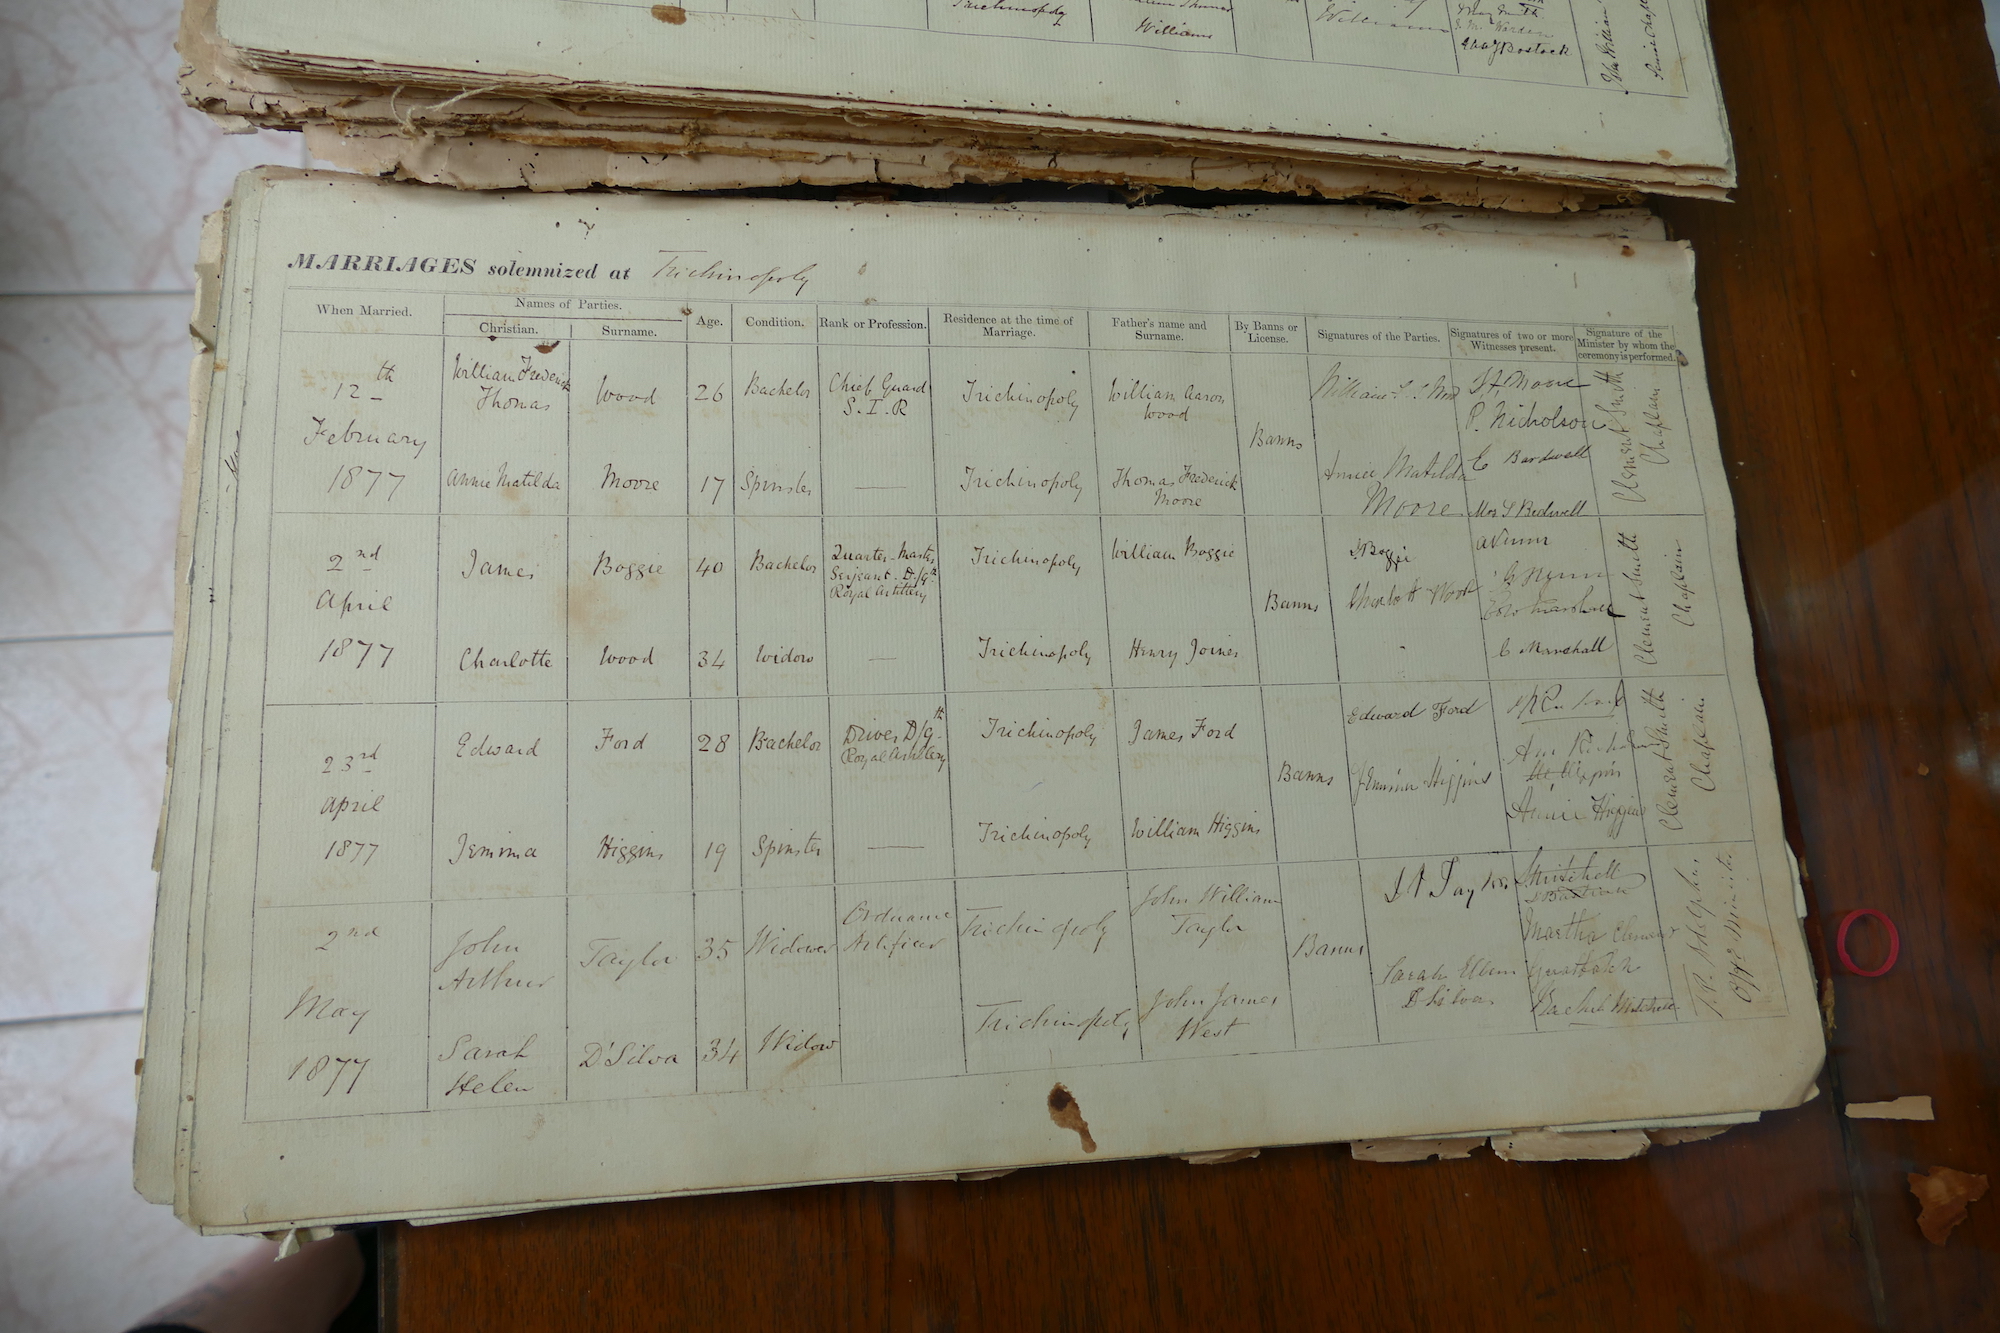 Trichinopoly
Williams
Williams
J. W. Bostock
MARRIAGES solemnized at Trichinopoly
When Married.
Names of Parties.
Christian.
Surname.
Age.
Condition.
Rank or Profession.
Residence at the time of
Marriage.
Father's name and
Surname.
By Banns or
License.
Signatures of the Parties.
Signatures of two or more
Witnesses present.
Signature of the
Minister by whom the
ceremony is performed.
12th
February
1877
William Frederick
Thomas
Wood
26
Bachelor
Chief Guard
S. I. R
Trichinopoly
William Aaron
Wood
Banns
P. Nicholson
Clement Smith
Chaplain
Annie Matilda
Moore
17
Spinster
Trichinopoly
Thomas Frederick
Moore
Annie Matilda
Moore
C Bardwell
Mrs S Bedwell
2nd
April
1877
James
Boggie
40
Bachelor
Quarter-Master
Serjeant D/9th
Royal Artillery
Trichinopoly
William Boggie
Banns
J Boggie
Charlott Wood
Clement Smith
Chaplain
Charlotte
Wood
34
Widow
Trichinopoly
Henry Joiner
C Marshall
23rd
April
1877
Edward
Ford
28
Bachelor
Driver D/9th
Royal Artillery
Trichinopoly
James Ford
Banns
Edward Ford
Jemima Higgins
Annie Higgins
Clement Smith
Chaplain
Jemima
Higgins
19
Spinster
Trichinopoly
William Higgins
2nd
May
1877
John
Arthur
Taylor
35
Widower
Ordnance
Artificer
Trichinopoly
John William
Taylor
Banns
J A Taylor
Sarah Ellen
D'Silva
Martha
Rachel Mitchell
Sarah
Helen
D'Silva
34
Widow
Trichinopoly
John James
West